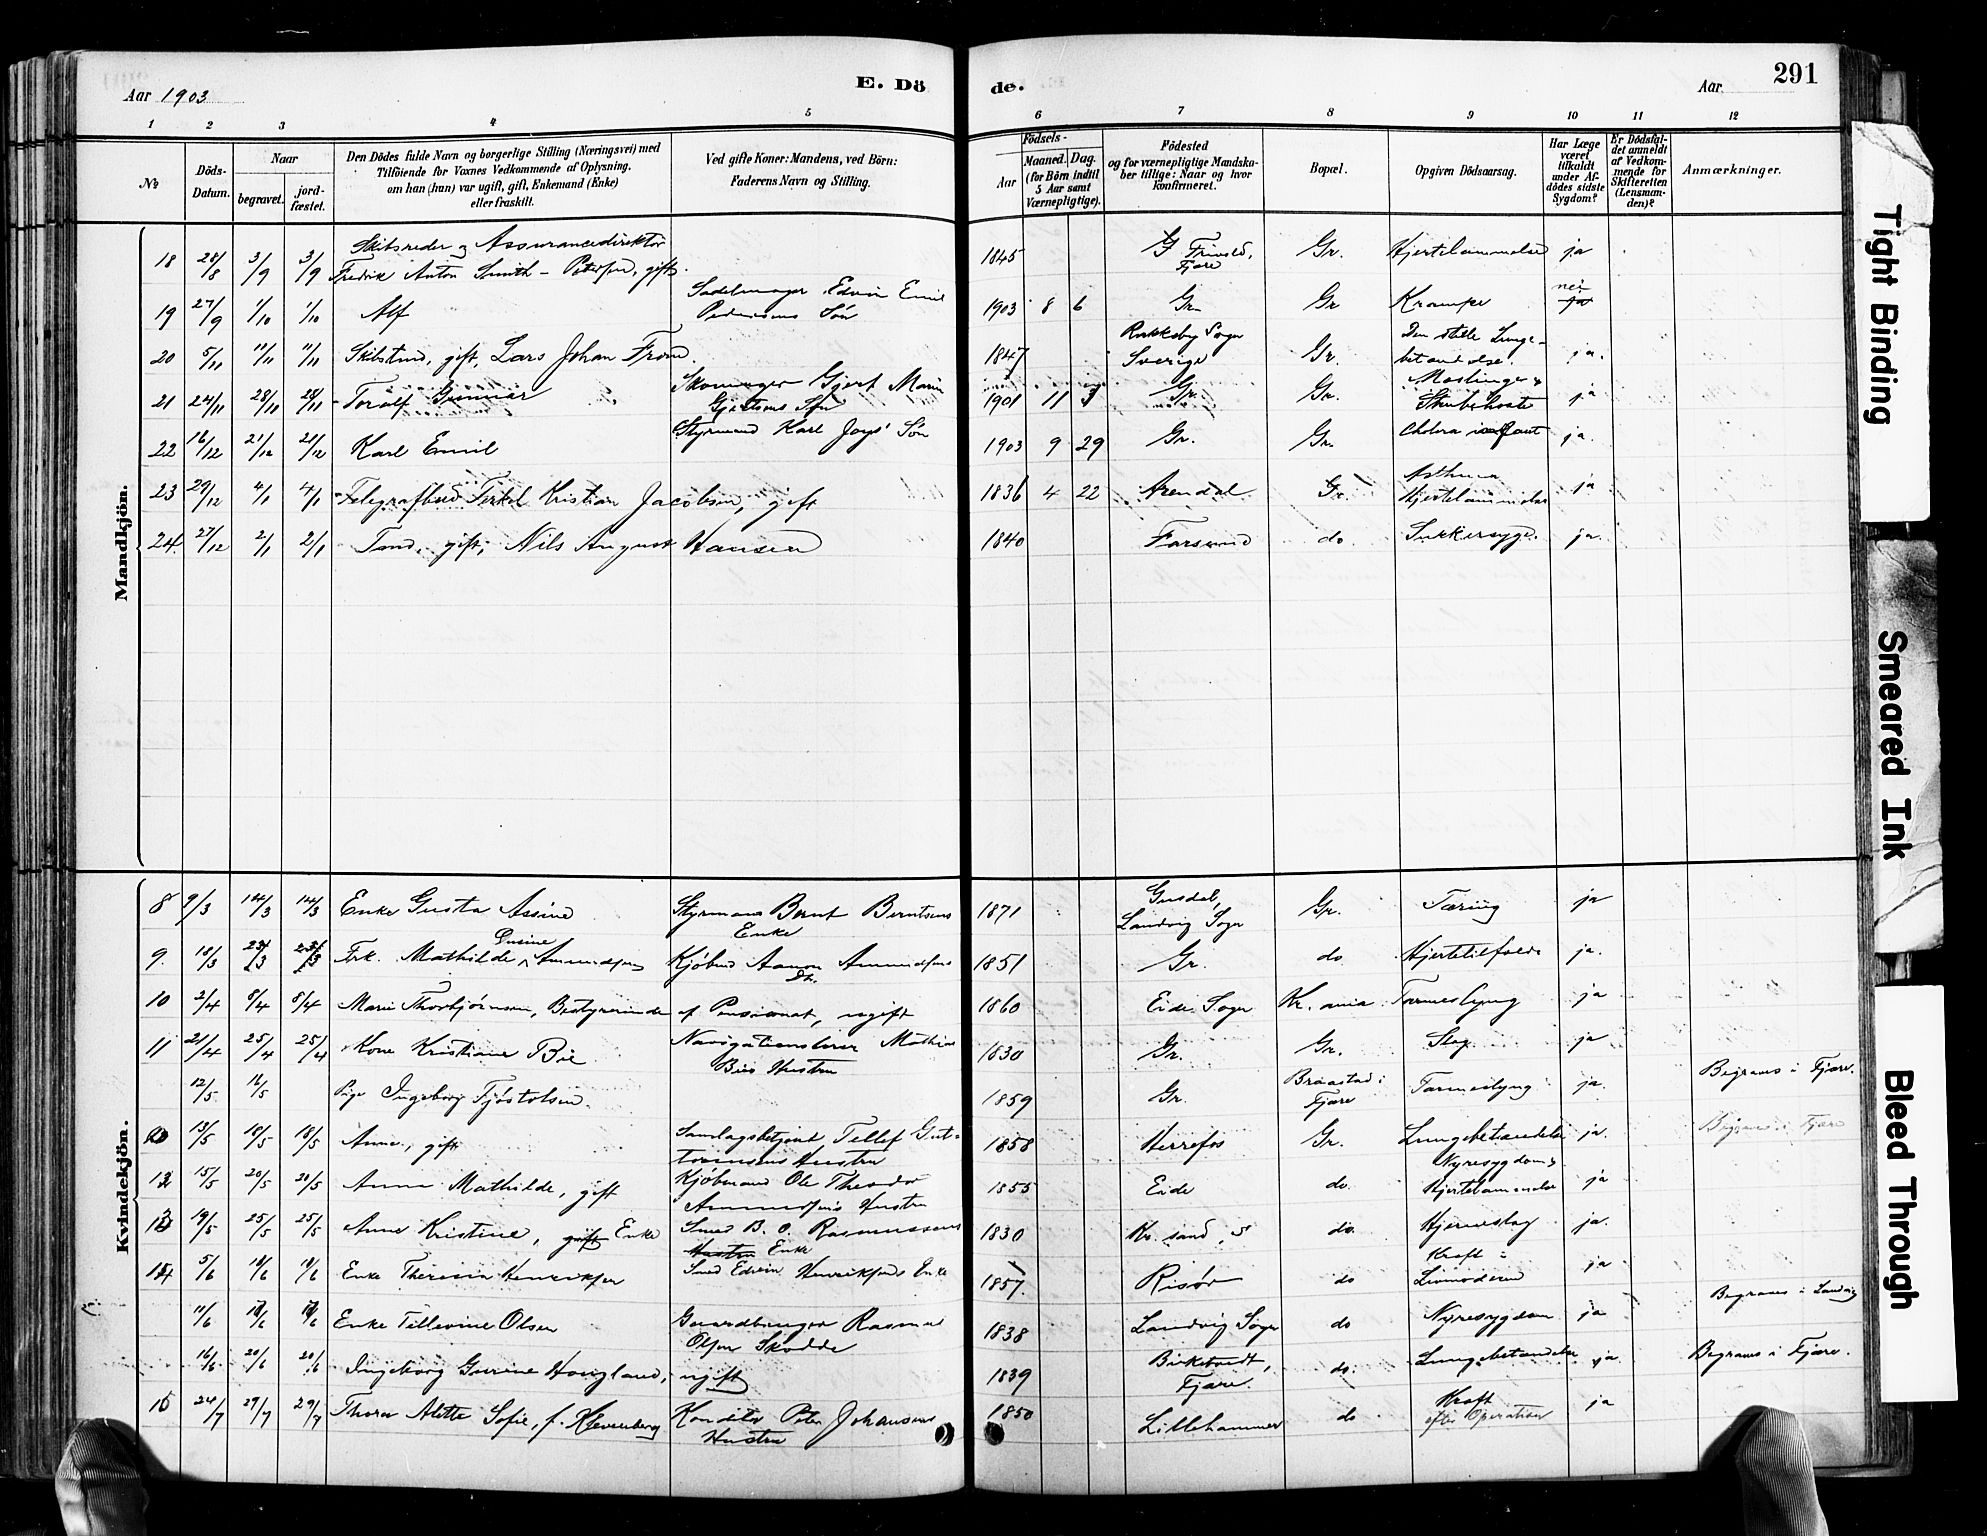 Aar 1903
E. Dö
de.
Aar
291
1 2 3 4 5 6 7 8 9 10 11 12
№
Döds-
Datum.
Naar
begravet.
jord-
fæstet.
Den Dödes fulde Navn og borgerlige Stilling (Næringsvei) med
Tilföiende for Voxnes Vedkommende af Oplysning.
om han (hun) var ugift, gift, Enkemand (Enke)
eller fraskilt.
Ved gifte Koner: Mandens, ved Börn:
Faderens Navn og Stilling.
Födsels-
Aar
Maaned.
Dag.
(for Börn indtil
5 Aar samt
Værnepligtige).
Födested
og for værnepligtige Mandska-
ber tillige: Naar og hvor
konfirmeret.
Bopæl.
Opgiven Dödsaarsag.
Har Læge
været
tilkaldt
under Af-
dödes sidste
Sygdom?
Er Dödsfal-
det anmeldt
af Vedkom-
mende for
Skifteretten
(Lensman-
den)?
Anmærkninger.
Mandkjön.
18 28/8 3/9 3/9 Skibsreder og Assurancedirektör
Fredrik Anton Smith-Petersen, gift. 1845 Frivold, Fjære Gr. Hjertelammelse ja
19 27/9 1/10 1/10 Alf Sadelmager Edvin Emil
Pedersens Sön 1903 8 6 Gr. Gr. Krampe nei
20 5/11 11/11 11/11 Skibstmd, gift, Lars Johan From. 1847 Sogn
Sverige Gr. Den stille Lunge-
betændelse. ja.
21 24/11 28/11 28/11 Toralf Gunnar Skomager Gjert
Gjertsens Sön 1901 11 3 Gr. Gr. Mæslinger &
Strubehoste ja
22 16/12 21/12 21/12 Karl Emil Styrmand Karl Joys' Sön 1903 9 29 Gr. Gr. Cholera infant ja.
23 29/12 4/1 4/1 Telegrafbud Terkel Kristian Jacobsen, gift 1836 4 22 Arendal Gr. Asthma
Hjertelammelse ja
24. 27/12 2/1 2/1 Tömd. gift, Nils August Hansen 1840 Farsund do. Sukkersyge. ja.
Kvindekjön.
8 9/3 14/3 14/3 Enke Gusta Assine Styrmand Bernt Berntsens
Enke 1871
Landvig Sogn Gr. Tæring ja
9. 18/3 23/3 23/3 Frk. Mathilde Amundsen Kjöbmd Aanon Amundsens
Dt. 1851 Gr. do Hjertetilfælde ja.
10 2/4 8/4 8/4 Marie Thorbjörnsen, Bestyrerinde af Pensionat, ugift 1860 Eide Sogn Kr.ania Tarmeslyng ja
11 21/4 25/4 25/4 Kone Kristiane Bie Navigationslærer Mathias
Bies Hustru 1830 Gr. Gr. Slag ja
12/5 16/5 Pige Ingeborg Fjöstolsen. 1859 Gr. Braastad i
Fjære Tarmeslyng ja. Begraves i Fjære.
13/5 18/5 18/5 Anne, gift Samlagsbetjent Tellef Gut-
tormsens Hustru 1858 Herrefos Gr. Lungebetændelse ja. Begraves i Fjære
12 15/5 20/5 20/5 Anna Mathilde, gift Kjöbmand Ole Theodor
Amundsens Hustru 1855 Eide do. Nyresygdom &
Hjertelammelse ja
13 19/5 25/5 25/5 Anne Kristine, gift Enke Smed B. O. Rasmussens
Hustru Enke 1830 Kr. sand. S do. Hjerneslag ja.
14 5/6 10/6 10/6 Enke Theresia Henriksen Smed Edvin Henriksens Enke 1857. Risör do Kræft i
Livmoderen ja
11/6 17/6 17/6 Enke Tellevine Olsen Gaardbruger Rasmus
Olsen Skodde 1838 Landvig Sogn do Nyresygdom ja Begraves i Landvig
16/6 20/6 20/6 Ingeborg Gurine Hougland, ugift 1839 Birketvedt,
Fjære. do. Lungebetændelse ja Begraves i Fjære.
15 24/7 29/7 29/7 Thora Alette Sofie, f. Konditor Peter Johansens
Hustru 1850 Lillehammer do Kræft
efter Operation ja
Tight Binding
Smeared Ink
Bleed Through